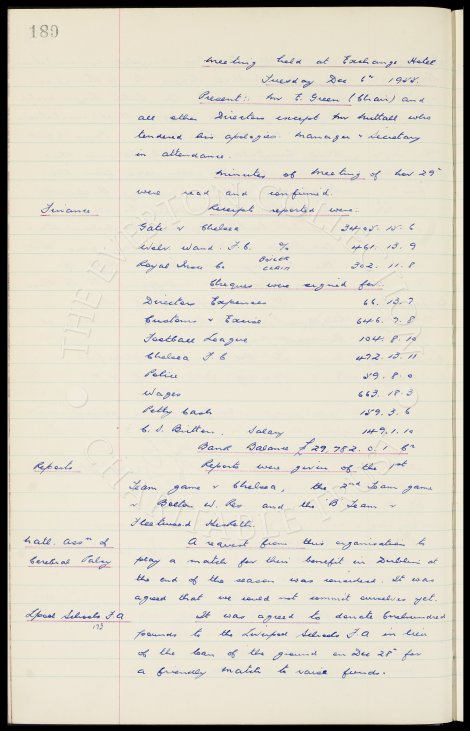 189
Meeting held at Exchange Hotel
Tuesday Dec 6th 1955.
Present:- Mr E. Green (Chair) and
all other Directors except Mr Nuttall who
tendered his apologies. Manager & Secretary
in attendance.
Minutes of meeting of Nov 29th
were read and confirmed.
Finance Receipts reported were:
Gate v Chelsea 3405. 15. 6
Wolv. Wand. F.C. % 461. 13. 9
Royal Insce Co 302. 11. 8
Cheques were signed for:-
Directors Expenses 66. 13. 7
Customs & Excise 646. 7. 8
Football League 104. 8. 10
Chelsea F C 472. 13. 11
Police 59. 8. 0
Wages 663. 18. 3
Petty Cash 159. 3. 6
C. S. Britton. Salary 149. 1. 10
Bank Balance £29,782. 0. 1.
Reports Reports were given of the 1st
Team game v Chelsea, the 2nd Team game
v Bolton W. Res and the 'B' Team v
Fleetwood Hesketh.
Natl. Assn of A request from this organisation to
Cerebral Palsy play a match for their benefit in Dublin at
the end of the season was considered. It was
agreed that we could not commit ourselves yet.
Lpool Schools F A It was agreed to donate
pounds to the Liverpool Schools F A in lieu
of the loan of the ground on Dec 28th for
a friendly match to raise funds.
THE EVERTON COLLECTION